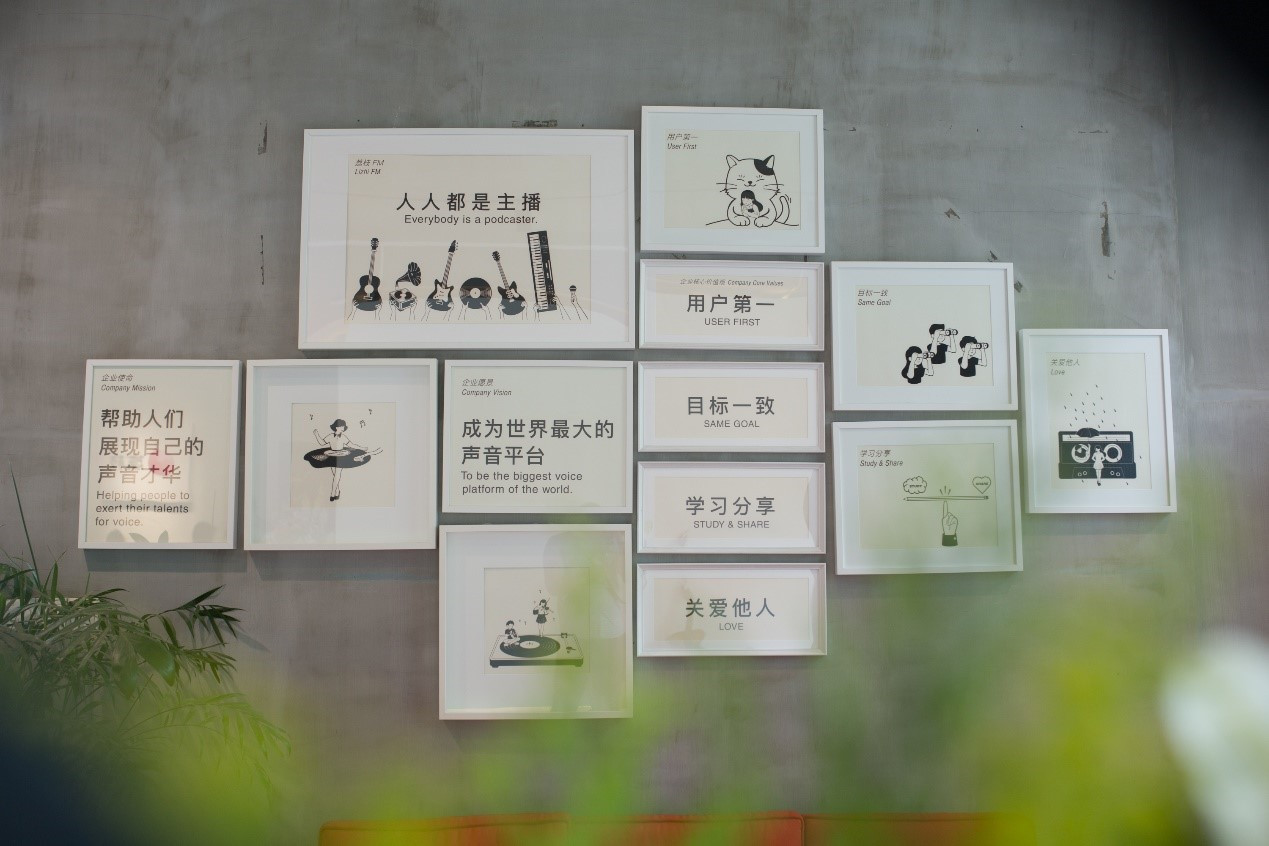 荔枝 FM
Lizhi FM
人人都是主播
Everybody is a podcaster.
用户第一
User First
企业核心价值观 Company Core Values
用户第一
USER FIRST
目标一致
Same Goal
关爱他人
Love
企业使命
Company Mission
帮助人们
展现自己的
声音才华
Helping people to
exert their talents
for voice.
企业愿景
Company Vision
成为世界最大的
声音平台
To be the biggest voice
platform of the world.
目标一致
SAME GOAL
学习分享
Study & Share
学习分享
STUDY & SHARE
关爱他人
LOVE